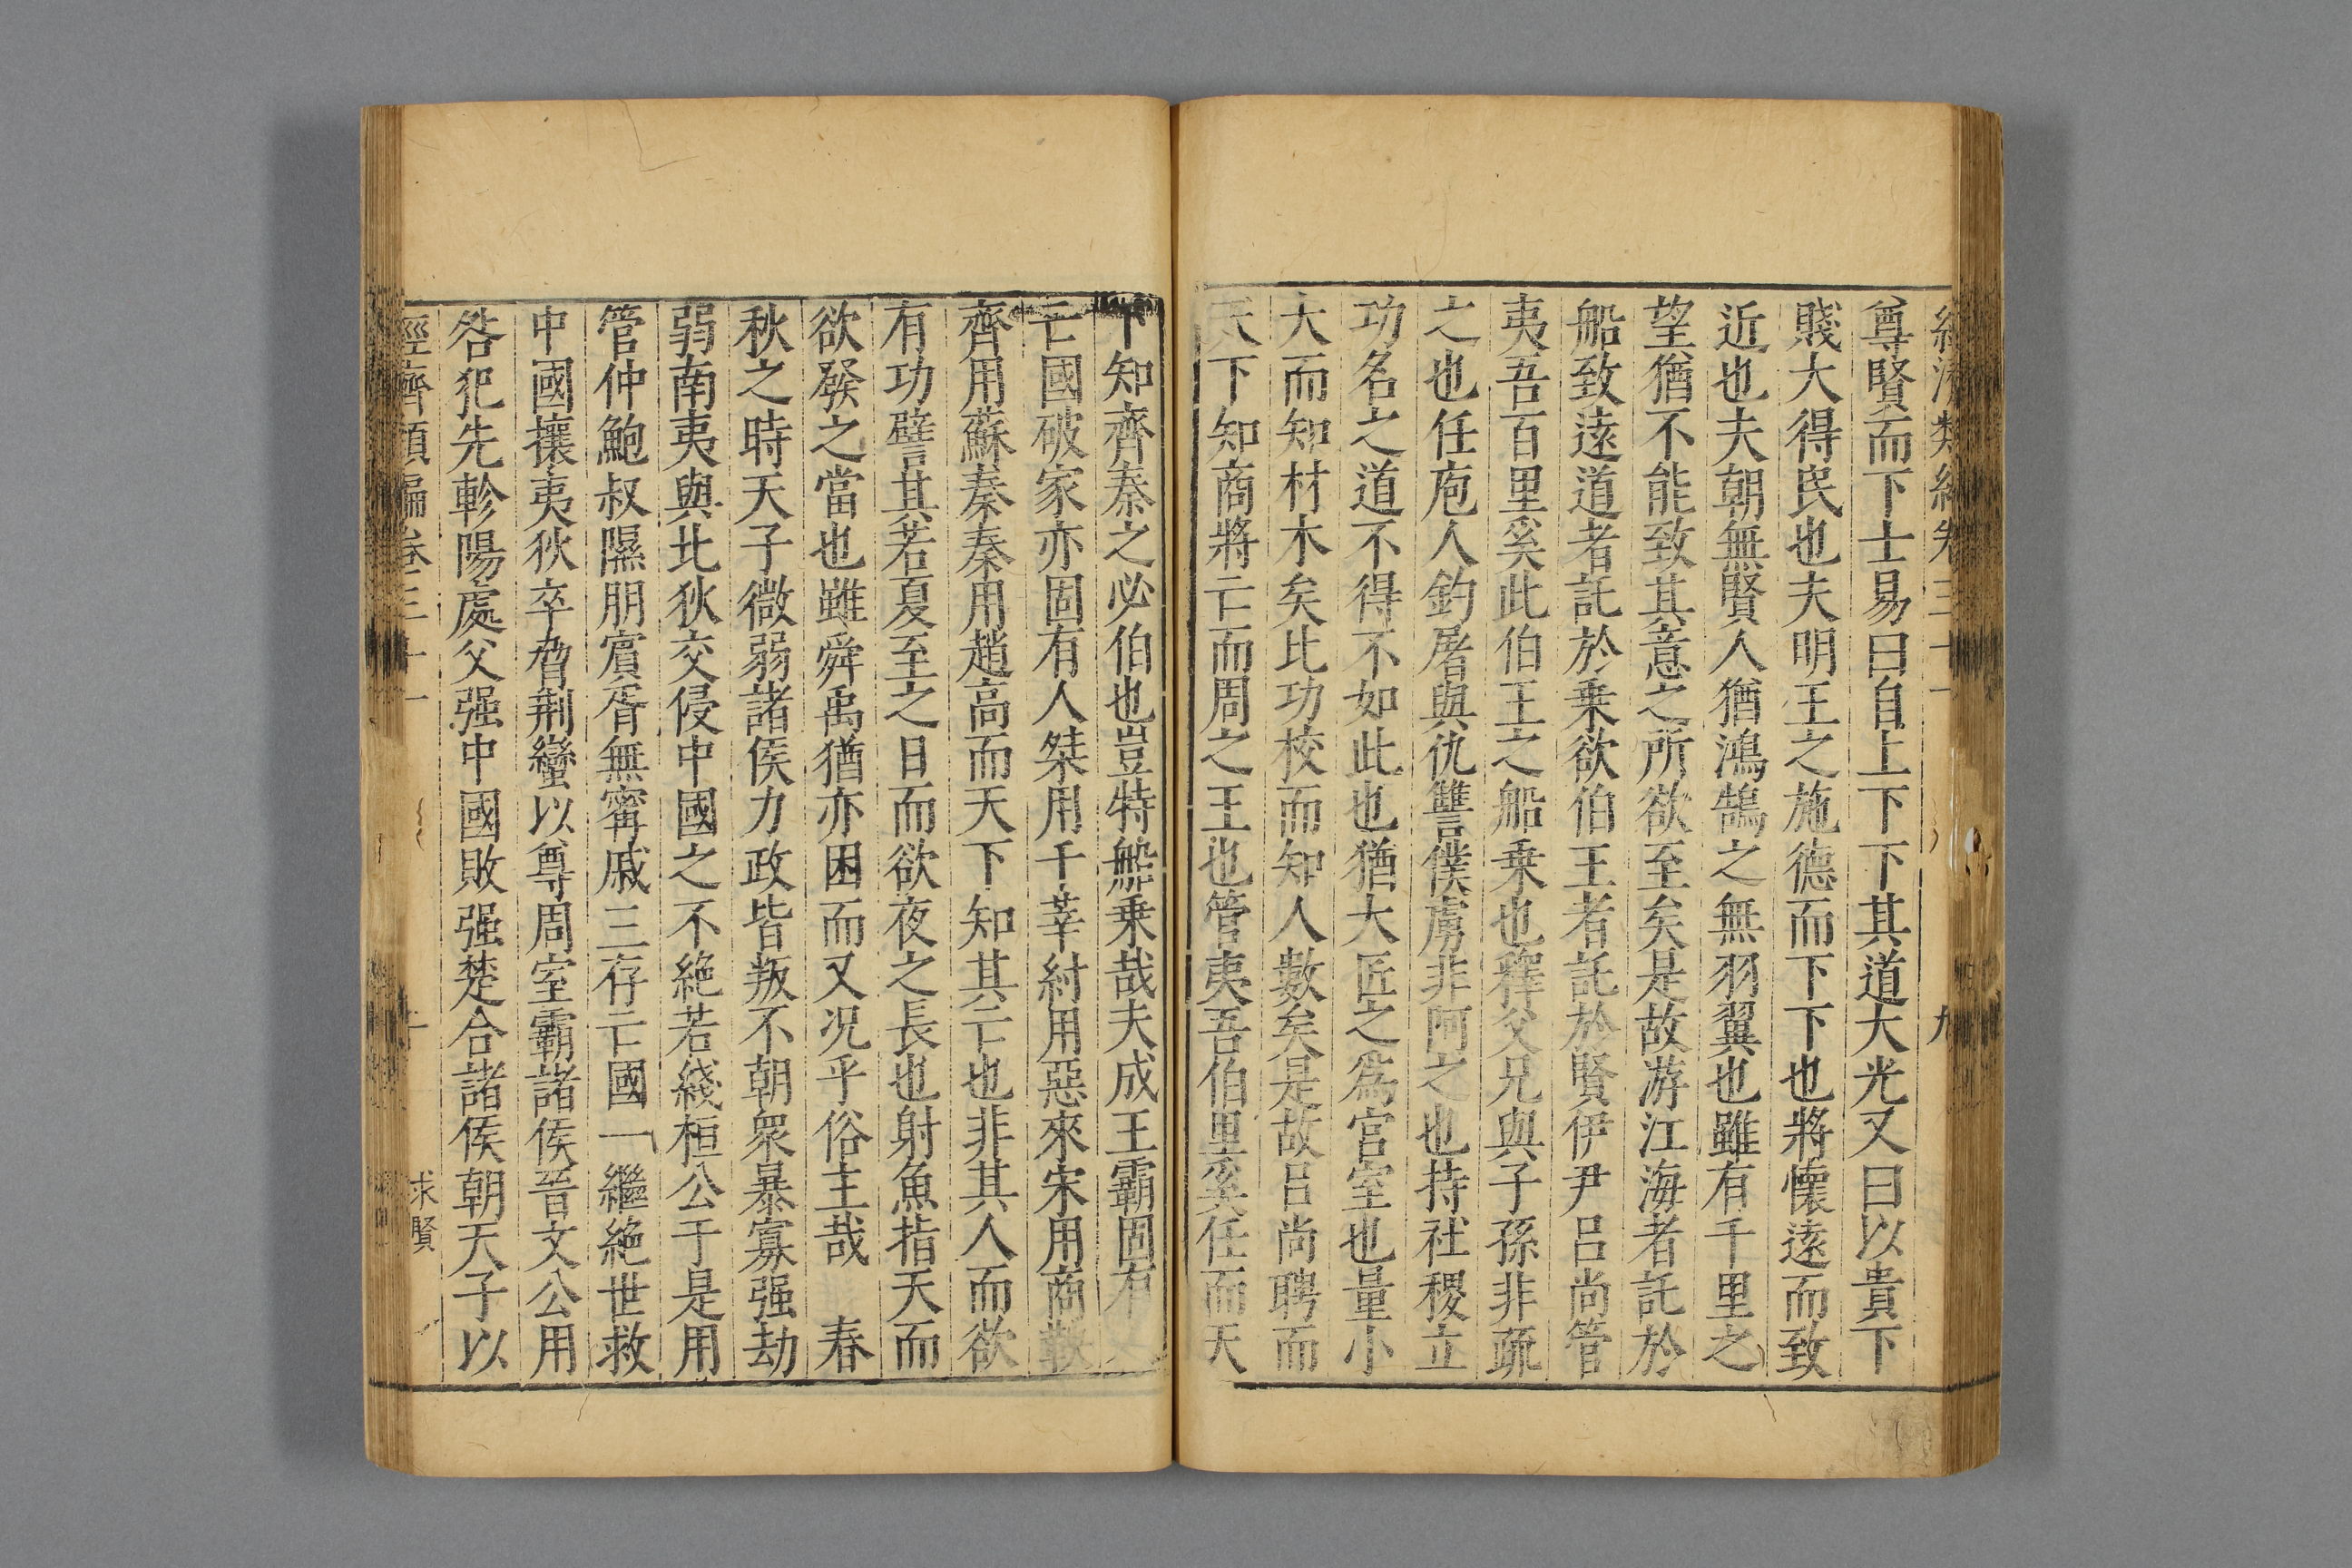 尊賢而下士易曰自上下下其道大光又曰以貴下
賤大得民也夫明王之施德而下下也將懷遠而致
近也夫朝無賢人猶鴻鵠之無羽翼也雖有千里之
望猶不能致其意之所欲至矣是故游江海者託於
船致遠道者託於乗欲伯王者託於賢伊尹吕尚管
夷吾百里奚此伯王之船乗也釋父兄與子孫非疏
之也任庖人釣屠與仇讐僕虜非阿之也持社稷立
功名之道不得不如此也猶大匠之爲宫室也量小
大而知材木矣比功校而知人數矣是故吕尚聘而
天下知商將亡而周之王也管夷吾伯里奚任而天
下知齊秦之必伯也豈特船乗哉夫成王霸固有
亡國破家亦固有人桀用千莘紂用惡來宋用商鞅
齊用蘇秦秦用趙高而天下知其亡也非其人而欲
有功譬其若夏至之日而欲夜之長也射魚指天而
欲發之當也雖舜禹猶亦困而又况乎俗主哉　春
秋之時天子微弱諸侯力政皆叛不朝衆暴寡强劫
弱南夷與北狄交侵中國之不絶若綫桓公于是用
管仲鮑叔隰朋賓胥無寗戚三存亡國一繼絶世救
中國攘夷狄卒脅荆蠻以尊周室霸諸侯晉文公用
咎犯先軫陽處父强中國敗强楚合諸侯朝天子以
經濟類編卷三十一　求賢